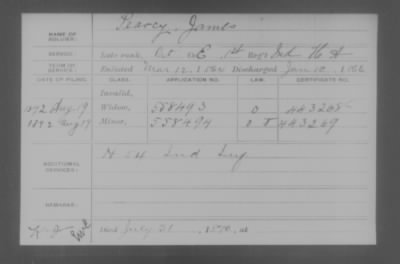 NAME OF SOLDIER: Pearcy, James
SERVICE: Late rank, Pvt Co. E, 1st Reg't Ind H A
TERM OF SERVICE: Enlisted Mar 12, 1864 Discharged Jan 10, 1866
DATE OF FILING. CLASS. APPLICATION NO. LAW. CERTIFICATE NO.
Invalid,
1892 Aug 19 Widow, 558493 O 443268
1892 Aug 19 Minor, 558494 O 443269
ADDITIONAL SERVICES: Ind Inf
REMARKS:
Died July 31, 1890, at